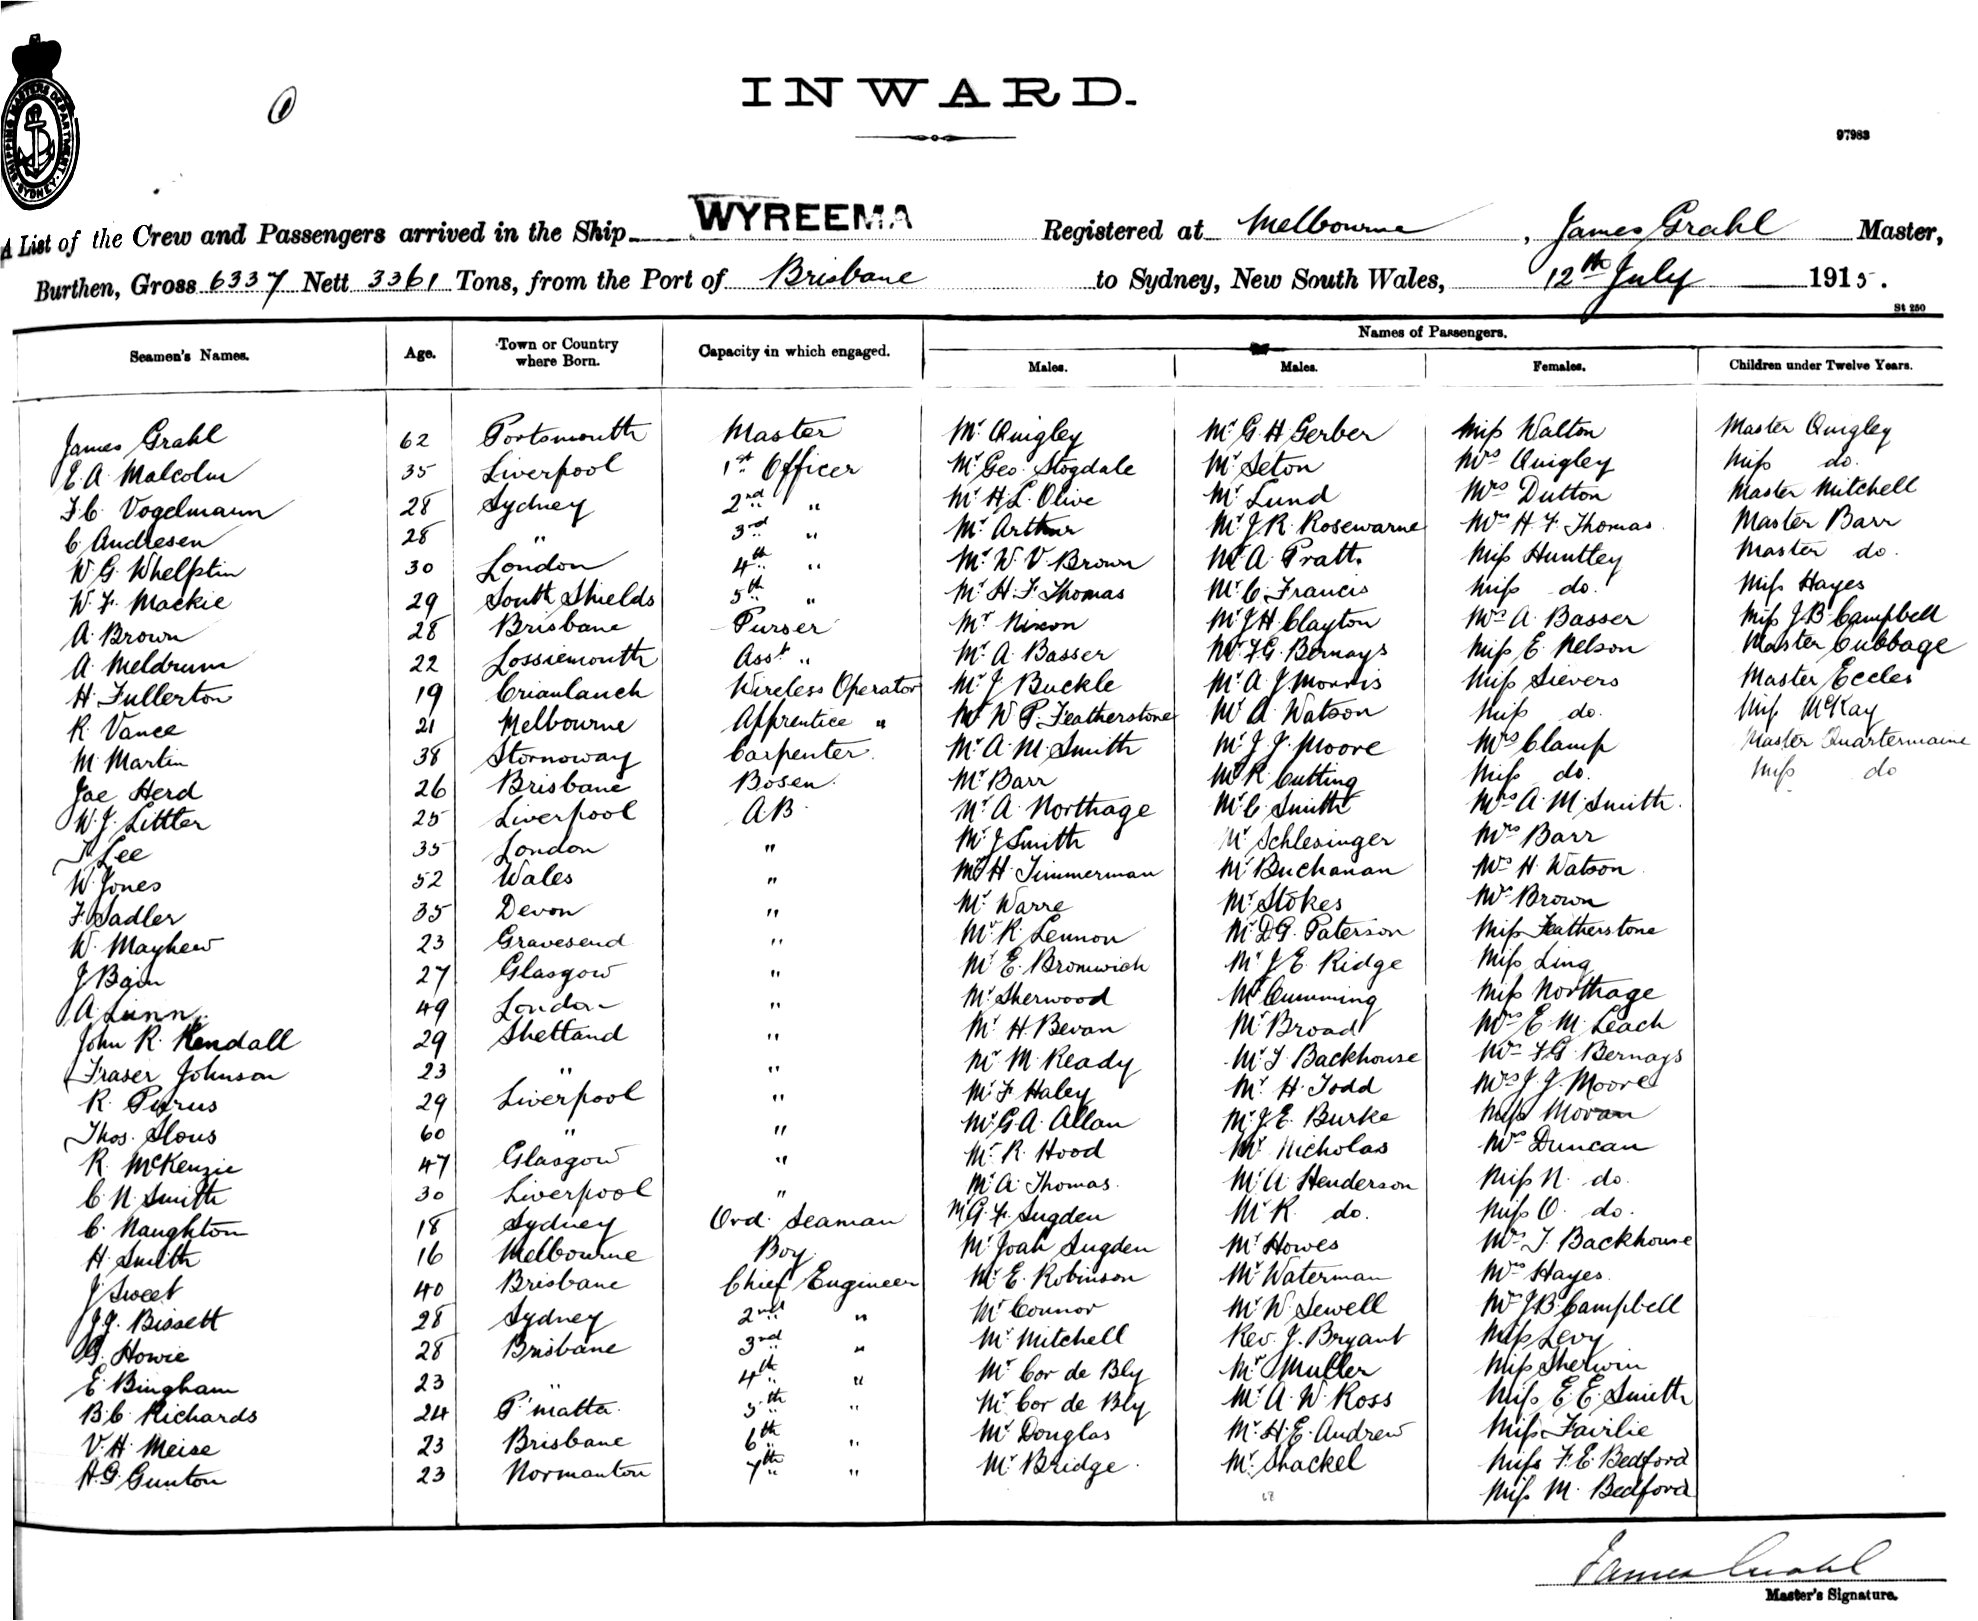 SHIPPING MASTERS DEPARTMENT. SYDNEY.
INWARD.
97983
A List of the Crew and Passengers arrived in the Ship WYREEMA Registered at Melbourne, James Grahl Master,
Burthen, Gross 6337 Nett 3361 Tons, from the Port of Brisbane to Sydney, New South Wales, 12th July 1915.
St 250
Seamen's Names. Age. Town or Country where Born. Capacity in which engaged. Names of Passengers.
Males. Males. Females. Children under Twelve Years.
James Grahl 62 Portsmouth Master Mr Quigley Mr G H Gerber Miss Walton Master Quigley
E. A. Malcolm 35 Liverpool 1st Officer Mr Geo. Stogdale Mr Seton Mrs Quigley Miss do.
F. C. Vogelmann 28 Sydney 2nd " Mr H. L. Olive Mr Lund Mrs Dutton Master Mitchell
C. Andresen 28 " 3rd " Mr Arthur Mr J. R. Rosewarne Mrs H. F. Thomas Master Barr
W. G. Whelptin 30 London 4th " Mr W. V. Brown Mr A. Pratt. Miss Huntley Master do.
W. F. Mackie 29 South Shields 5th " Mr H. F. Thomas Mr C. Francis Miss do. Miss Hayes
A. Brown 28 Brisbane Purser Mr Nixon Mr J H Clayton Mrs A. Basser Miss J. B. Campbell
A. Meldrum 22 Lossiemouth Asst. " Mr A. Basser Mr F. G. Bernays Miss E. Nelson Master Cubbage
H. Fullerton 19 Crianlauch Wireless Operator Mr J Buckle Mr A. J. Morris Miss Sievers Master Eccles
R. Vance 21 Melbourne Apprentice " Mr W P. Featherstone Mr A. Watson Miss do. Miss McKay
M. Martin 38 Stornoway Carpenter. Mr A. M. Smith Mr J. J. Moore Mrs Clamp Master Quartermaine
Jae Herd 26 Brisbane Bosen. Mr Barr Mr R. Cutting Miss do. Miss do
W. J. Littler 25 Liverpool A.B. Mr A. Northage Mr C. Smith Mrs A. M. Smith.
Lee 35 London " Mr J Smith Mr Schlesinger Mrs Barr
W. Jones 52 Wales " Mr H. Timmerman Mr Buchanan Mrs H. Watson
F. Sadler 35 Devon " Mr Warre Mr Stokes Mrs Brown
W. Mayhew 23 Gravesend " Mr R. Lennon Mr D. G. Paterson Miss Featherstone
J Bain 27 Glasgow " Mr E. Bromwich Mr J E. Ridge Miss Ling
A. Lunn 49 London " Mr Sherwood Mr Cumming Miss Northage
John R. Kendall 29 Shetland " Mr H. Bevan Mr Broad Mrs E. M. Leach
Fraser Johnson 23 " " Mr M. Ready Mr T Backhouse Mrs F. G. Bernays
R. 29 Liverpool " Mr F. Haley Mr H. Todd Mrs J. J. Moore
Thos. Slous 60 " " Mr G. A. Allan Mr J. E. Burke Miss Moran
R. McKenzie 47 Glasgow " Mr R. Hood Mr Nicholas Mrs Duncan
C. N. Smith 30 Liverpool " Mr A. Thomas. Mr A Henderson Miss N. do.
C. Naughton 18 Sydney Ord. Seaman Mr G. F. Sugden Mr R. do. Miss O. do.
H. Smith 16 Melbourne Boy Mr Joah Sugden Mr Howes Mrs T. Backhouse
J Sweet 40 Brisbane Chief Engineer Mr E. Robinson Mr Waterman Mrs Hayes.
J. J. Bissett 28 Sydney 2nd " Mr Connor Mr W. Sewell Mrs J. B. Campbell
G. Howie 28 Brisbane 3rd " Mr Mitchell Rev. J. Bryant Miss Levy
E. Bingham 23 " 4th " Mr Cor de Bly Mr Muller Miss Sherwin
B. C. Richards 24 P'matta. 5th " Mr Cor de Bly Mr A. W. Ross Miss E. E. Smith
V. H. Meise 23 Brisbane 6th " Mr Douglas Mr H. E. Andrew Miss Fairlie
A. G. Gunton 23 Normanton 7th " Mr Bridge. Mr Shackel Miss F. E. Bedford
Miss M. Bedford
James Grahl
Master's Signature.